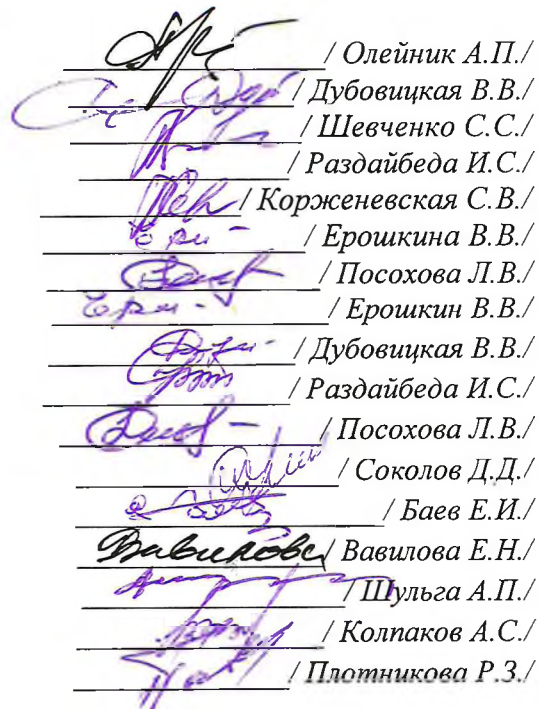 / Олейник А.П./
/ Дубовицкая В.В./
/ Шевченко С.С./
/ Раздайбеда И.С./
/ Корженевская С.В./
/ Ерошкина В.В./
/ Посохова Л.В./
/ Ерошкин В.В./
/ Дубовицкая В.В./
/ Раздайбеда И.С./
/ Посохова Л.В./
/ Соколов Д.Д./
/ Баев Е.И./
Вавилова / Вавилова Е.Н./
/ Шульга А.П./
/ Колпаков А.С./
/ Плотникова Р.З./